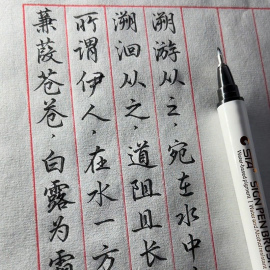 蒹葭苍苍，白露为霜
所谓伊人，在水一方
溯洄从之，道阻且长
溯游从之，宛在水中
STA SIGN PEN
Water-based pigment